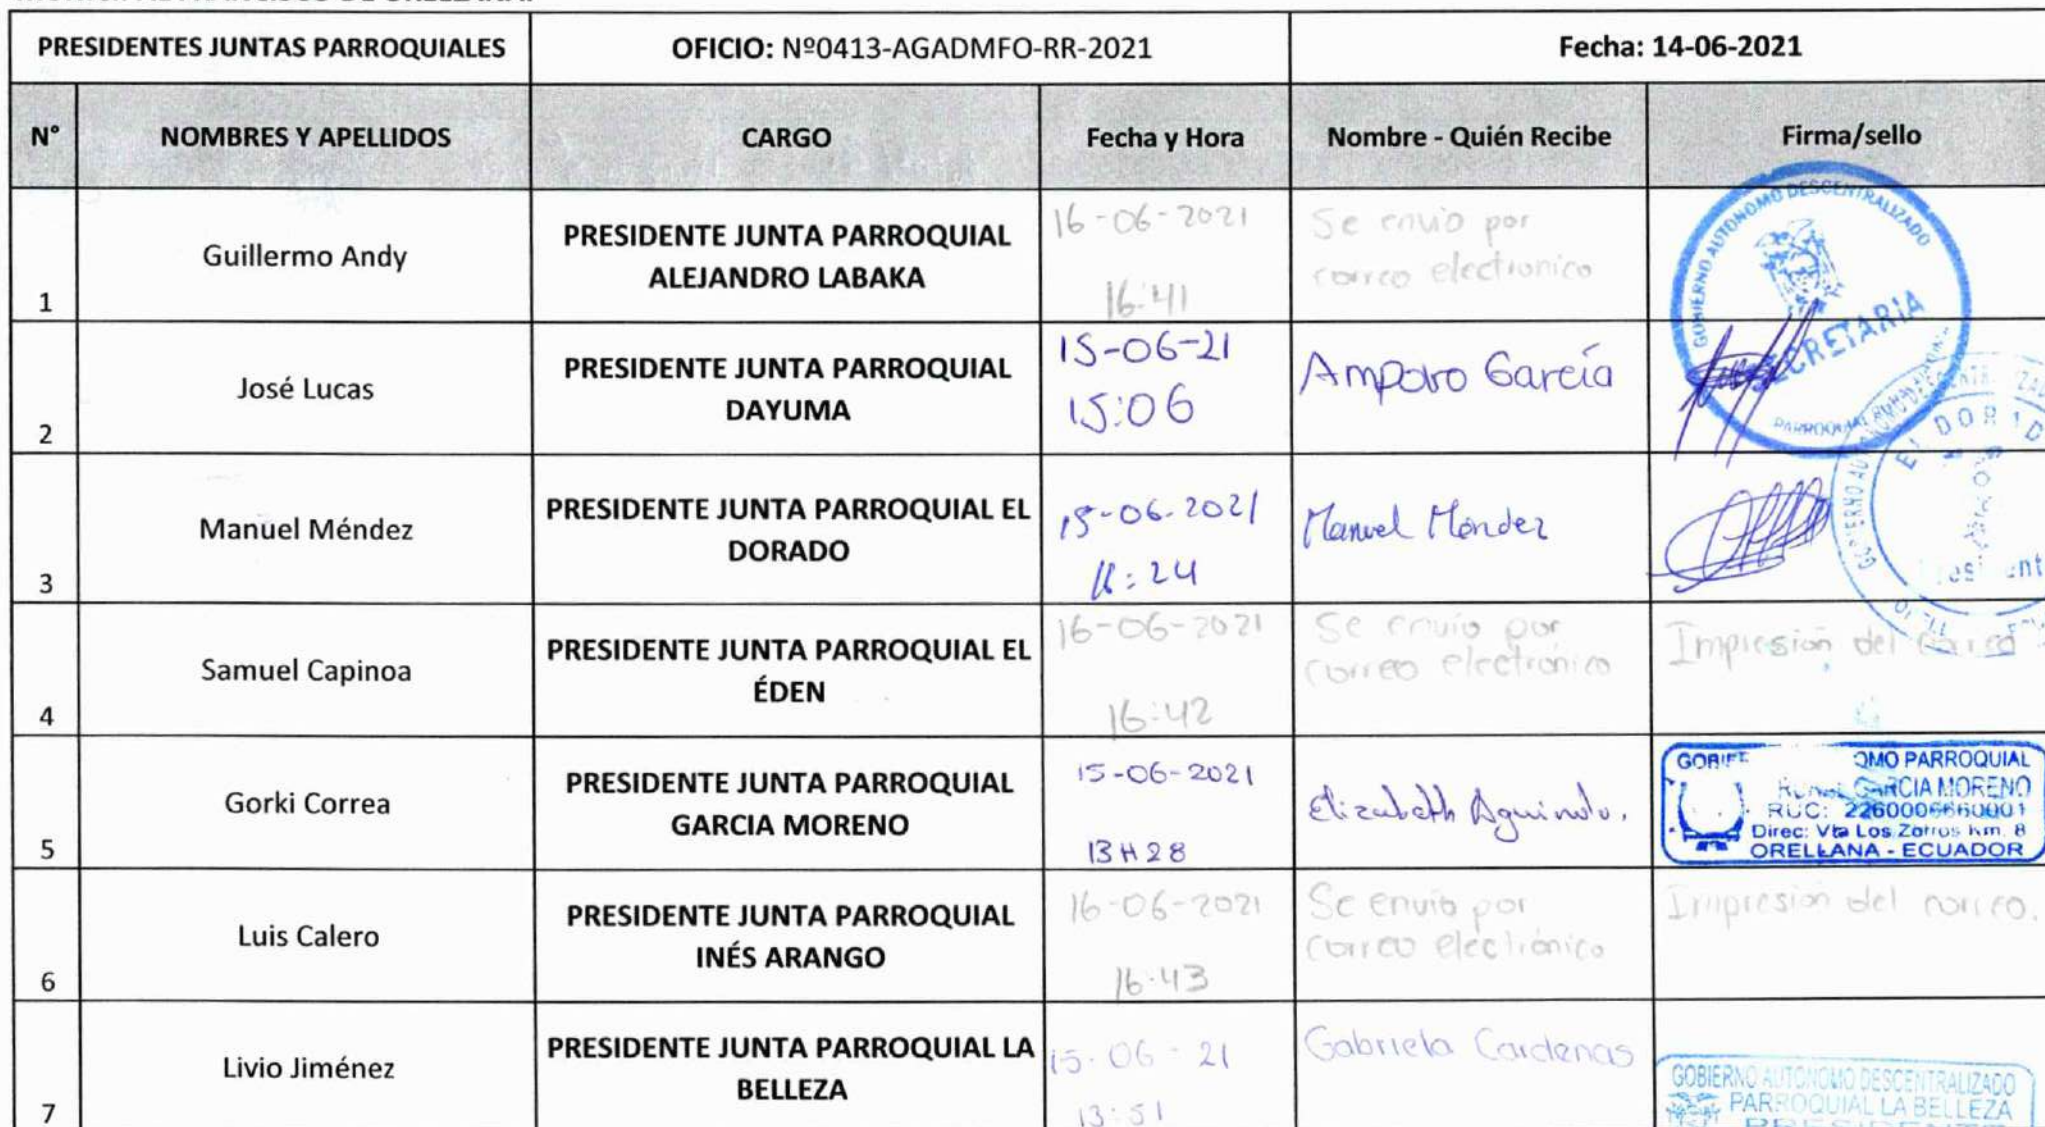 PRESIDENTES JUNTAS PARROQUIALES OFICIO: Nº0413-AGADMFO-RR-2021 Fecha: 14-06-2021
N° NOMBRES Y APELLIDOS CARGO Fecha y Hora Nombre - Quién Recibe Firma/sello
1 Guillermo Andy
PRESIDENTE JUNTA PARROQUIAL
ALEJANDRO LABAKA
16-06-2021
16:41
Se envio por
correo electronico
GOBIERNO AUTONOMO DESCENTRALIZADO
SECRETARIA
2 José Lucas
PRESIDENTE JUNTA PARROQUIAL
DAYUMA
15-06-21
15:06
Amparo García
3 Manuel Méndez
PRESIDENTE JUNTA PARROQUIAL EL
DORADO
15-06-2021
16:24
Manuel Méndez
4 Samuel Capinoa
PRESIDENTE JUNTA PARROQUIAL EL
ÉDEN
16-06-2021
16:42
Se envio por
correo electrónico
Impresión del correo
5 Gorki Correa
PRESIDENTE JUNTA PARROQUIAL
GARCIA MORENO
15-06-2021
13H28
Elizabeth Aguinda.
OMO PARROQUIAL
RURAL GARCIA MORENO
RUC: 2260006660001
Direc: Vía Los Zorros Km. 8
ORELLANA - ECUADOR
6 Luis Calero
PRESIDENTE JUNTA PARROQUIAL
INÉS ARANGO
16-06-2021
16:43
Se envio por
correo electrónico
Impresión del correo.
7 Livio Jiménez
PRESIDENTE JUNTA PARROQUIAL LA
BELLEZA
15-06-21
13:51
Gabriela Cardenas
GOBIERNO AUTONOMO DESCENTRALIZADO
PARROQUIAL LA BELLEZA